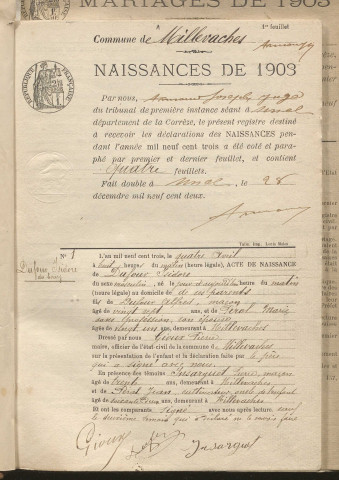 MARIAGES DE 1903
1er feuillet
Commune de Millevaches
RÉPUBLIQUE FRANÇAISE
NAISSANCES DE 1903
Par nous,
du tribunal de première instance séant à Ussel
département de la Corrèze, le présent registre destiné
à recevoir les déclarations des NAISSANCES pen-
dant l'année mil neuf cent trois a été coté et para-
phé par premier et dernier feuillet, et contient
quatre feuillets.
Fait double à Ussel, le 28
décembre mil neuf cent deux.
N° 1
Dufour Isidore
L'an mil neuf cent trois, le quatre Avril
à huit heures du matin (heure légale), ACTE DE NAISSANCE
de Dufour Isidore
sexe masculin, né le jour d'aujourd'hui heures du matin
(heure légale) au domicile de
fils de Dufour maçon
âgé de vingt sept ans, et de Péral Marie
sans profession, son épouse
âgée de vingt un ans, demeurant à Millevaches
Dressé par nous Gioux Pierre
maire, officier de l'état civil de la commune de Millevaches
sur la présentation de l'enfant et la déclaration faite par le père
qui a signé avec nous.
En présence des témoins maçon
âgé de trente ans, demeurant à Millevaches
et de Péral Jean cultivateur
âgé de ans, demeurant à Millevaches
Et ont les comparants signé avec nous après lecture
Gioux